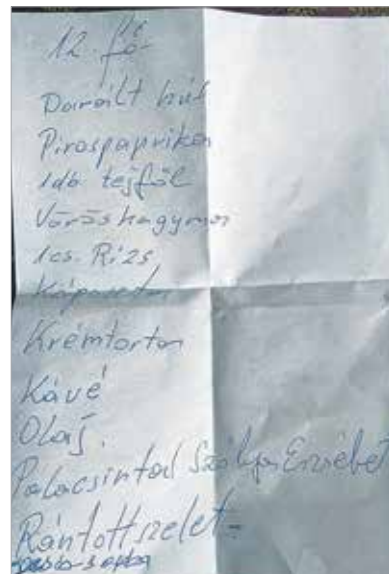 12. fő
Darált hús
Pirospaprika
1db. tejföl
Vöröshagyma
1cs. Rizs
Káposzta
Krémtorta
Kávé
Olaj.
Palacsinta Erzsébet
Rántott szelet